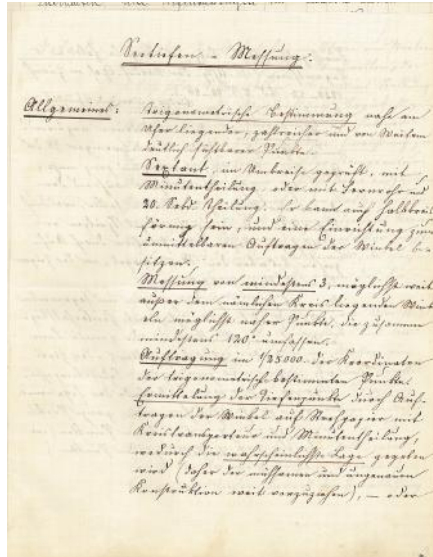 Seetiefen-Messung.
Allgemeines: Trigonometrische Bestimmung nahe am
Ufer liegender, zahlreicher und von Weitem
deutlich sichtbarer Punkte.
Sextant, im Umkreise geprüft, mit
Minutentheilung oder mit Fernrohr und
20. Sekd. Theilung. Er kann auch halbkreis-
förmig sein, und eine Einrichtung zum
unmittelbaren Auftragen der Winkel be-
sitzen.
Messung von mindestens 3, möglichst weit
außer dem nämlichen Kreis liegenden Wink-
eln möglichst naher Punkte, die zusammen
mindestens 120° umfassen.
Auftragung im 1/25000 der Koordinaten
der trigonometrisch bestimmten Punkte.
Ermittelung der Tiefenpunkte durch Auf-
tragen der Winkel auf Pauspapier mit
Kreistransporteur und Minutentheilung,
wodurch die wahrscheinlichste Lage gegeben
wird (daher der mühsamen und ungenauen
Konstruktion weit vorzuziehen), — oder